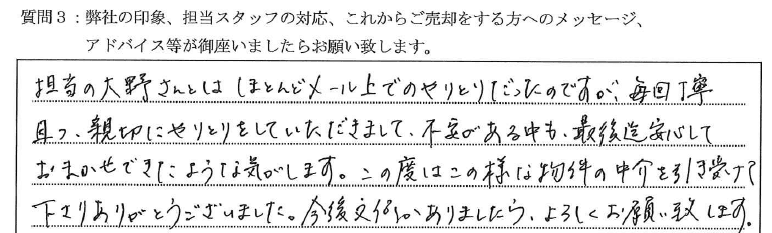 質問3：弊社の印象、担当スタッフの対応、これからご売却をする方へのメッセージ、
アドバイス等が御座いましたらお願い致します。
担当の大野さんとはほとんどメール上でのやりとりだったのですが、毎回丁寧
且つ、親切にやりとりをしていただきまして、不安がある中も、最後迄安心して
おまかせできたような気がします。この度はこの様な物件の中介を引き受けて
下さりありがとうございました。今後又何かありましたら、よろしくお願い致します。